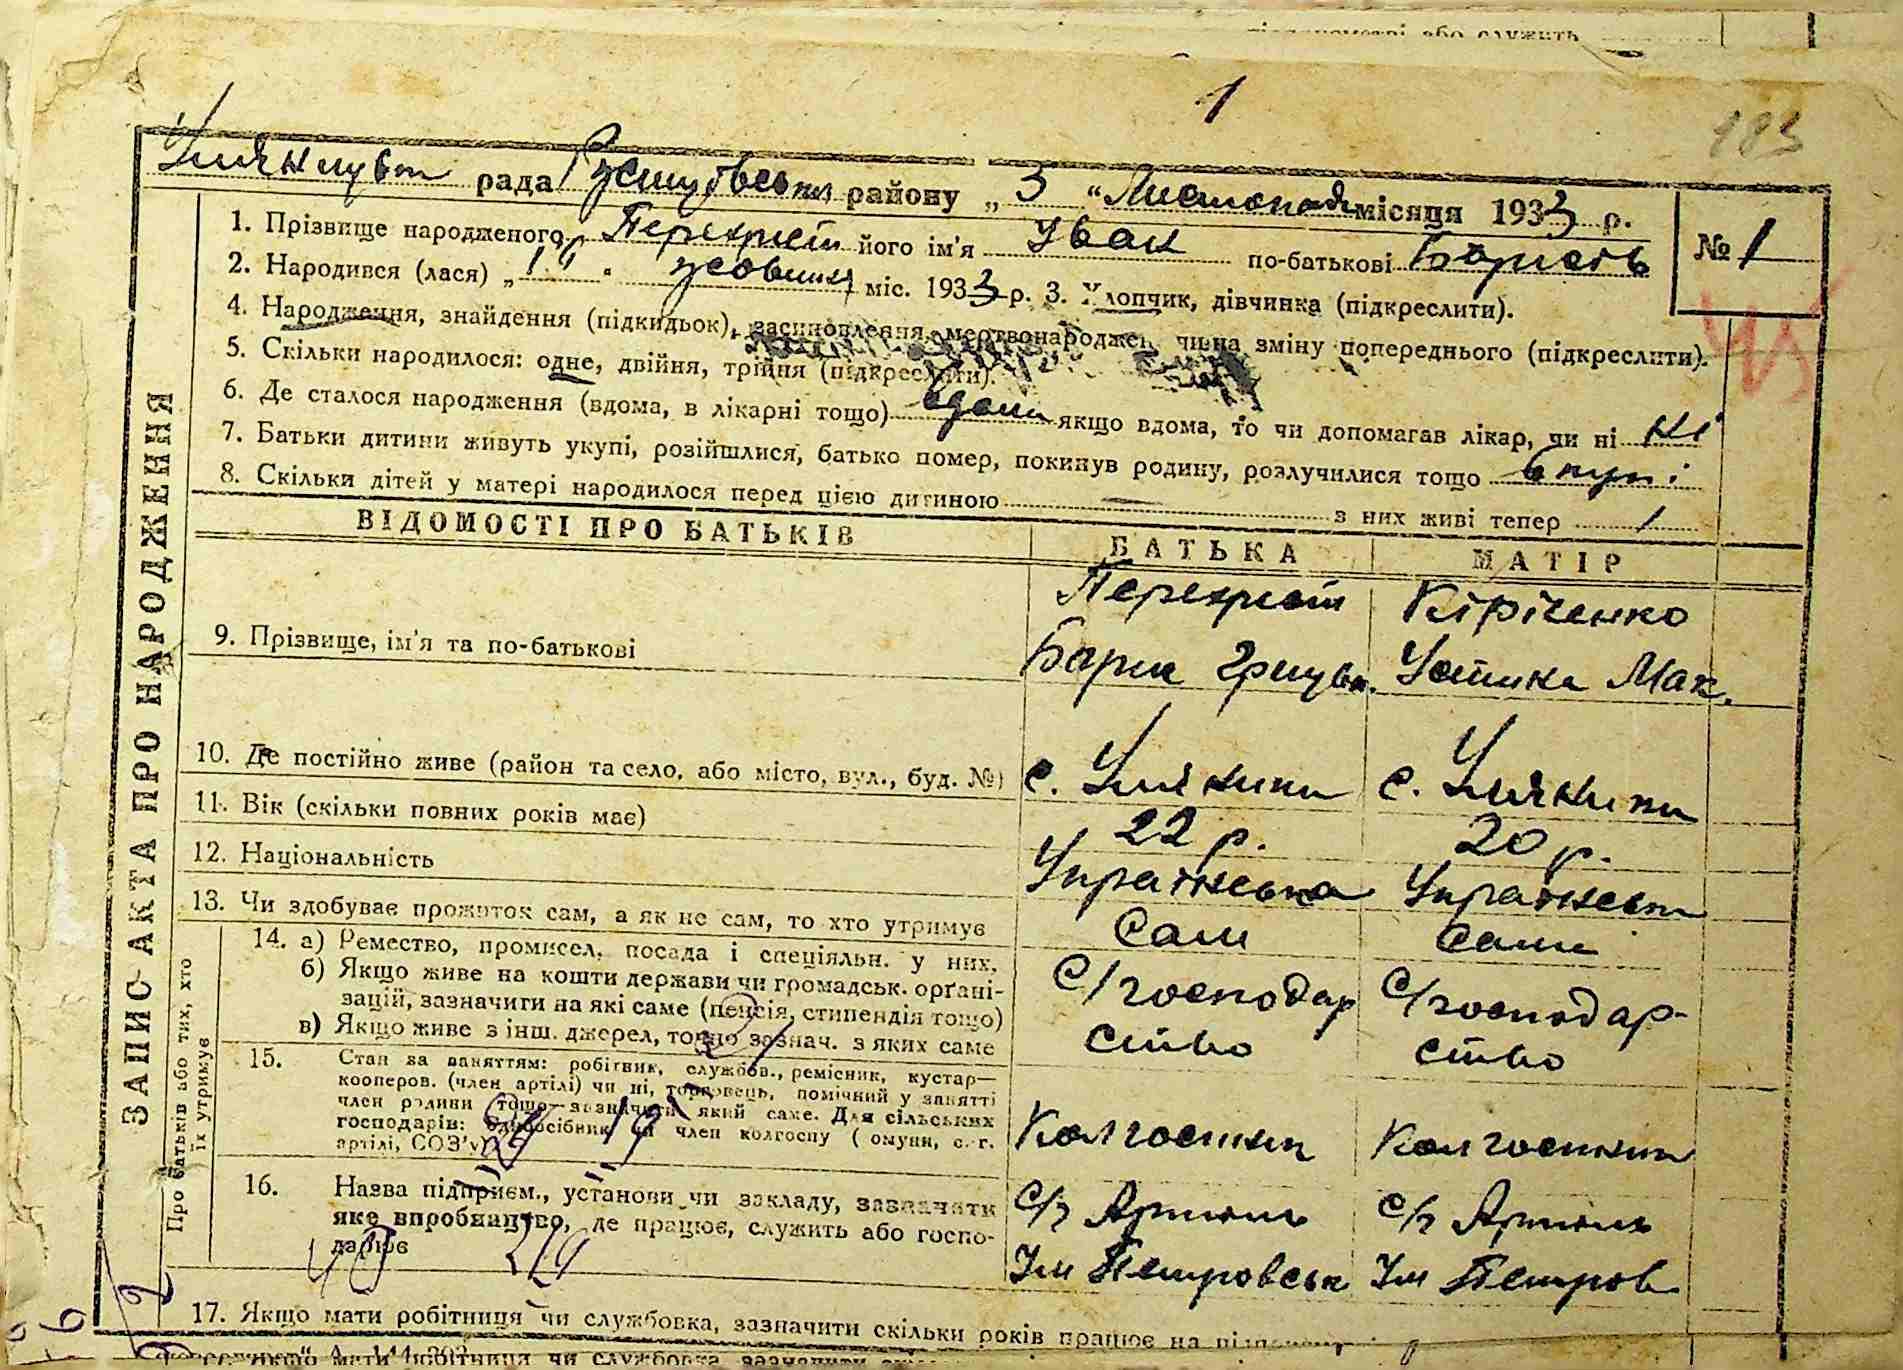 підприємстві або служить
1
183
рада району „ 3 “ Листопад місяця 1933 р.
№ 1
1. Прізвище народженого Перехрест його ім'я Іван по-батькові Борисов
2. Народився (лася) „ 1 “ жовтня міс. 1933 р. 3. Хлопчик, дівчинка (підкреслити).
4. Народження, знайдення (підкидьок), засиновлення, мертвонароджен. чи на зміну попереднього (підкреслити).
5. Скільки народилося: одне, двійня, трійня (підкреслити).
6. Де сталося народження (вдома, в лікарні тощо) вдома якщо вдома, то чи допомагав лікар, чи ні ні
7. Батьки дитини живуть укупі, розійшлися, батько помер, покинув родину, розлучилися тощо вкупі
8. Скільки дітей у матері народилося перед цією дитиною — з них живі тепер 1
ЗАПИС АКТА ПРО НАРОДЖЕННЯ
ВІДОМОСТІ ПРО БАТЬКІВ БАТЬКА МАТІР
Перехрест Кіріченко
9. Прізвище, ім'я та по-батькові Борис Грицьк. Устина Мак.
10. Де постійно живе (район та село, або місто, вул., буд. №) с. Уляники с. Уляники
11. Вік (скільки повних років має) 22 р. 20 р.
12. Національність Українська Українська
13. Чи здобуває прожиток сам, а як не сам, то хто утримує Сам сама
Про батьків або тих, хто їх утримує
14. а) Ремество, промисел, посада і спеціяльн. у них. С/господар С/господар-
б) Якщо живе на кошти держави чи громадськ. орґані-
зацій, зазначити на які саме (пенсія, стипендія тощо) ство ство
в) Якщо живе з інш. джерел, точно зазнач. з яких саме
15. Стан за заняттям: робітник, службов., ремісник, кустар—
кооперов. (член артілі) чи ні, торговець, помічний у занятті
член родини тощо—зазначити який саме. Для сільських
господарів: одноосібник чи член колгоспу ( омуни, с.-г.
артілі, СОЗ'у) Колгоспник Колгоспниця
16. Назва підприєм., установи чи закладу, зазначити С/г Артіль С/г Артіль
яке виробництво, де працює, служить або госпо-
дарює Ім Петровськ Ім Петров
17. Якщо мати робітниця чи службовка, зазначити скільки років працює на